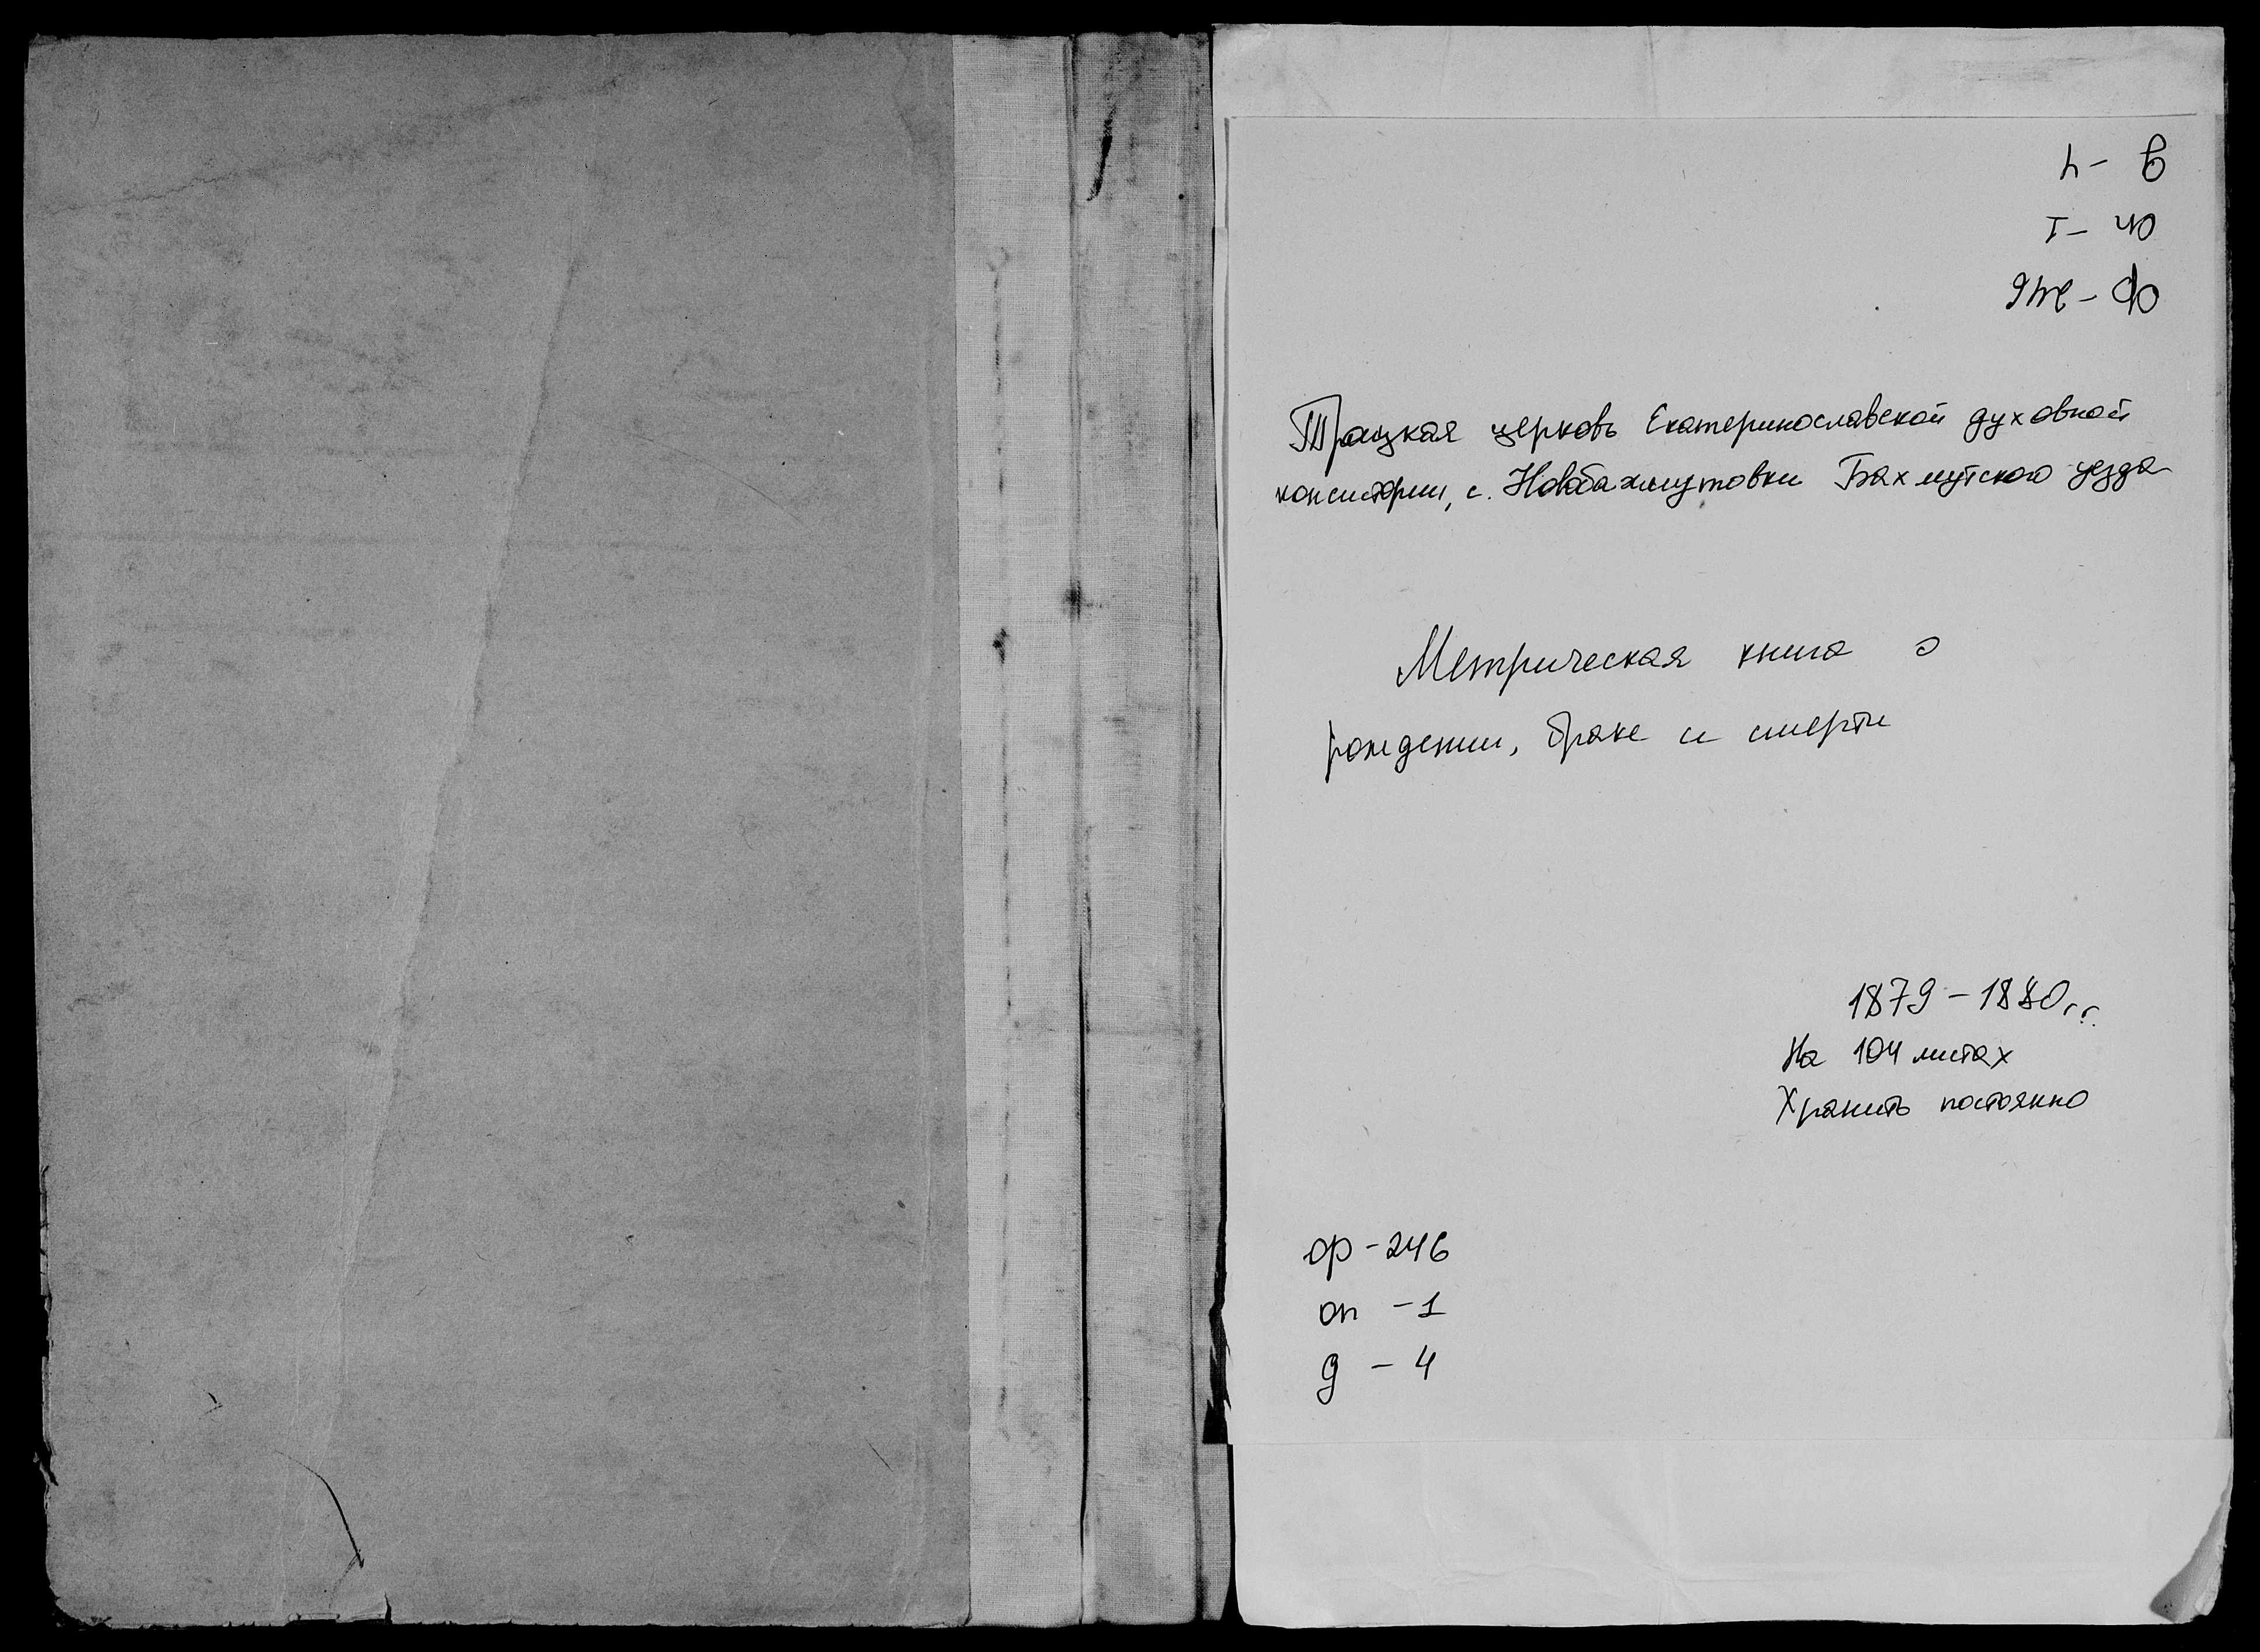 ф-246
оп-1
д-4
Троицкая церковь Екатеринославской духовной
консистории, с. Новобахмутовки Бахмутского уезда
Метрическая книга о
рождении, браке и смерти
1879-1880 г.г.
На 104 листах
Хранить постоянно
ф-246
оп-1
д-4